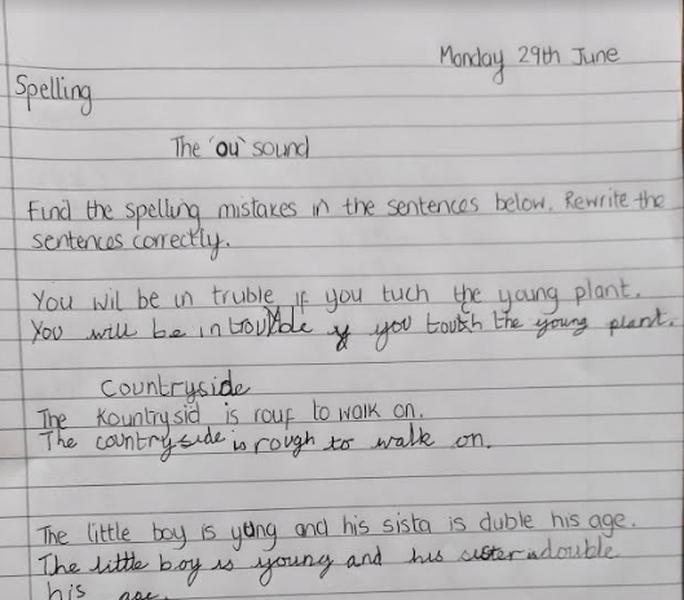 Monday 29th June
Spelling
The 'ou' sound
Find the spelling mistakes in the sentences below. Rewrite the
sentences correctly.
You wil be in truble if you tuch the young plant.
You will be in trouble if you touch the young plant.
Countryside
The Kountrysid is rouf to walk on.
The countryside is rough to walk on.
The little boy is yung and his sista is duble his age.
The little boy is young and his sister is double
his age.